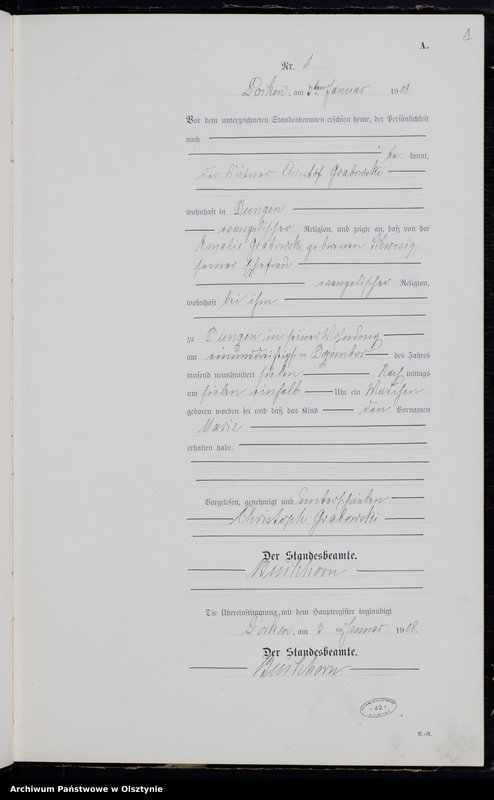 A.
1
Nr. 1
Dorken, am 3ten Januar 1908.
Vor dem unterzeichneten Standesbeamten erschien heute, der Persönlichkeit
nach
be kannt,
der Kätner Christof Grabowski
wohnhaft in Dungen
evangelischer Religion, und zeigte an, daß von der
Amalie Grabowski geborenen
seiner Ehefrau
evangelischer Religion,
wohnhaft bei ihm
zu Dungen in seiner Wohnung
am einunddreißigsten Dezember des Jahres
tausend neunhundert sieben Nachmittags
um sieben einhalb Uhr ein Mädchen
geboren worden sei und daß das Kind den Vornamen
Marie
erhalten habe.
Vorgelesen, genehmigt und unterschrieben
Christoph Grabowski
Der Standesbeamte.
Buchhorn
Die Übereinstimmung mit dem Hauptregister beglaubigt
Dorken, am 3 ten Januar 1908.
Der Standesbeamte.
Buchhorn
42
R.-R.
Archiwum Państwowe w Olsztynie